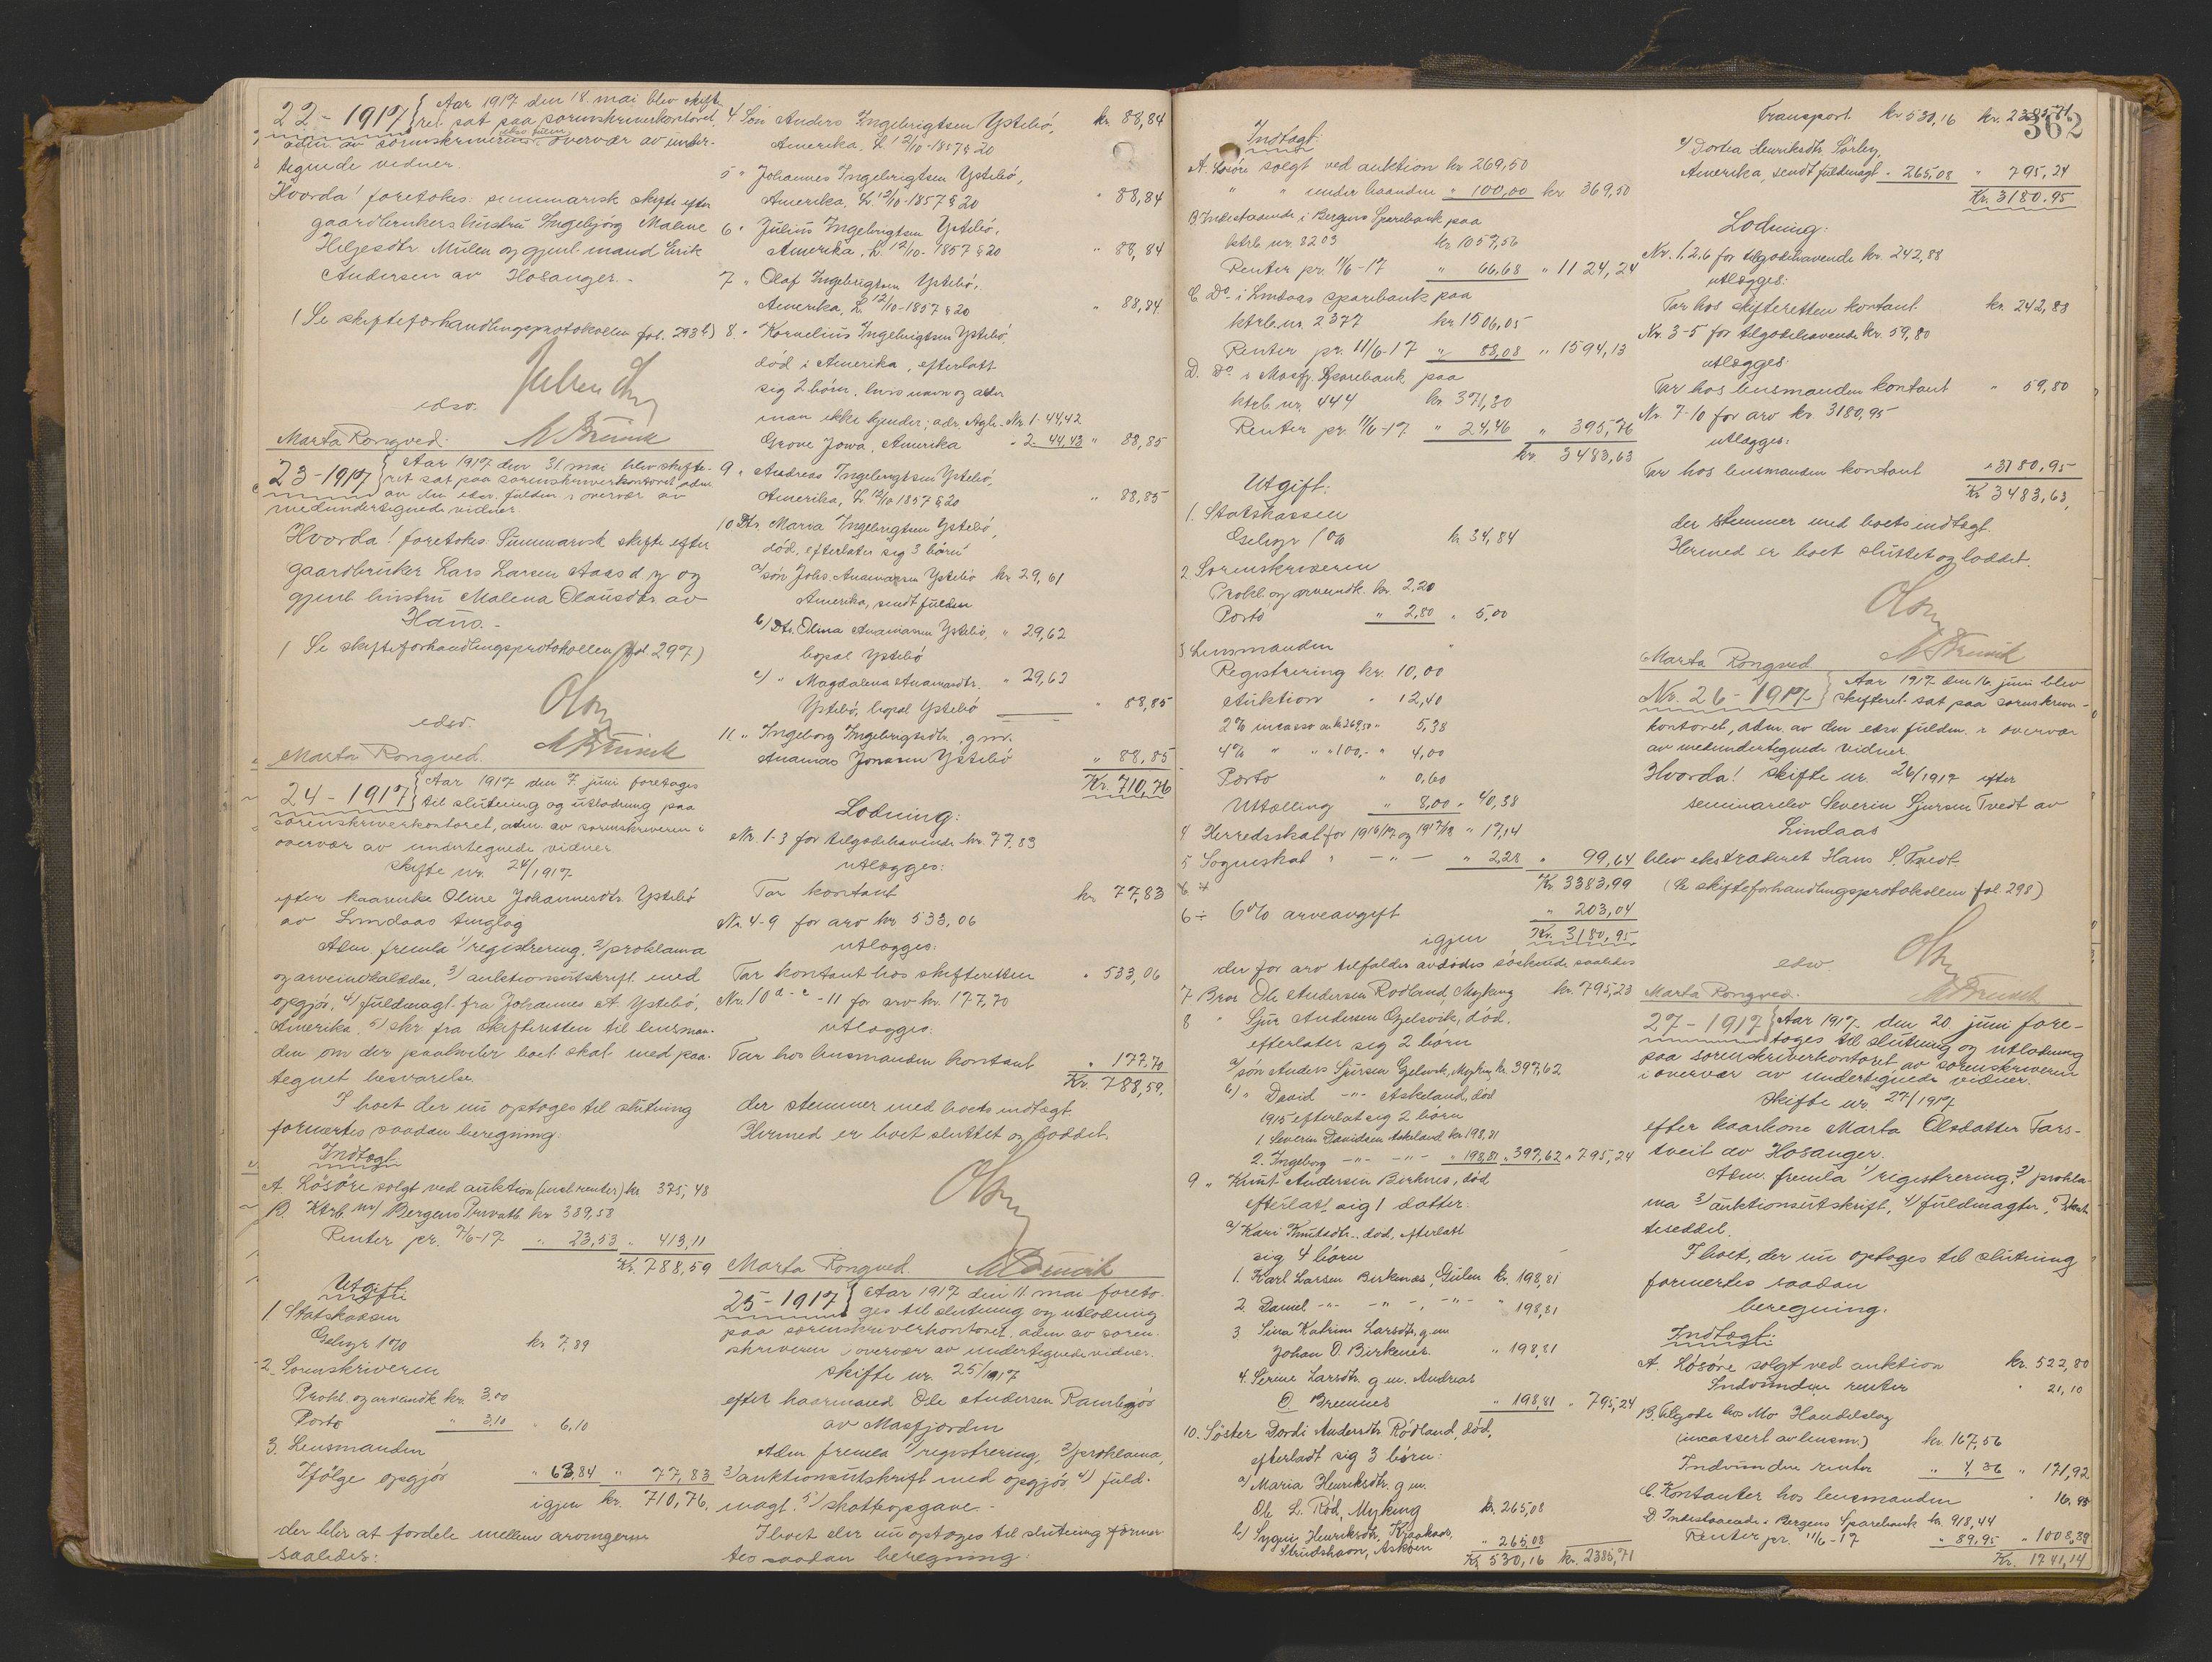 22-1917 } Aar 1917 den 18. mai blev skifte-
ret sat paa sorenskriverkontoret,
adm. av sorenskriverens edsv. fuldm. i overvær av under-
tegnede vidner.
Hvorda! foretokes: summarisk skifte efter
gaardbrukerhustru Ingebjörg Maline
Helgesdtr. Mulen og gjenl. mand Erik
Andersen av Hosanger. -
( Se skifteforhandlingsprotokollen fol. 293 b)
edsv.
Marta Rongved.
23-1917 } Aar 1917 den 31. mai blev skifte-
ret sat paa sorenskriverkontoret, adm.
av den edsv. fuldm. i overvær av
medundertegnede vidner.
Hvorda! foretokes: Summarisk skifte efter
gaardbruker Lars Larsen Aas d.y. og
gjenl. hustru Malena Olausdtr. av
Haus. -
( Se skifteforhandlingsprotokollen fol. 297)
Olsen
edsv.
Marta Rongved.
24-1917 } Aar 1917 den 7. juni foretoges
til slutning og utlodning paa
sorenskriverkontoret, adm. av sorenskriveren i
overvær av undertegnede vidner
Skifte nr. 24/1917
efter kaarenke Oline Johannesdtr. Ystebö
av Lindaas tinglag
Adm. fremla 1) registrering, 2) proklama
og arveindkaldelse, 3) auktionsutskrift med
opgjör, 4) fuldmagt fra Johannes A. Ystebö,
Amerika, 5) skr. fra skifteretten til lensman-
den om der paahviler boet skat med paa-
tegnet besvarelse.
I boet der nu optoges til slutning
formertes saadan beregning:
Indtægt:
A. Lösöre solgt ved auktion (incl. renter) kr. 375,48
B. Ktrb. nr/ Bergens Privatb. kr. 389,58
Renter pr. 7/6-17 " 23,53 " 413,11
Kr. 788,59
Utgift:
1. Statskassen
Gebyr 1% kr. 7,89
2. Sorenskriveren
Prokl. og arveindk. kr. 3,00
Porto " 3,10 " 6,10
3. Lensmanden
Ifölge opgjör " 63,84 " 77,83
igjen kr. 710,76
der blir at fordele mellem arvingerne
saaledes:
4 Sön Anders Ingebrigtsen Ystebö, kr. 88,84
Amerika, L. 12/10-1857 § 20
5 " Johannes Ingebrigtsen Ystebö,
Amerika, L. 12/10-1857 § 20 " 88,84
6 " Julius Ingebrigtsen Ystebö,
Amerika, L. 12/10-1857 § 20 " 88,84
7 " Olaf Ingebrigtsen Ystebö,
Amerika, L. 12/10-1857 § 20 " 88,84
8. " Kornelius Ingebrigtsen Ystebö,
död i Amerika, efterlatt
sig 2 börn, hvis navn og alder
man ikke kjender; adr. Nr. 1. 44,42
Grove Jowa, Amerika - 2. 44,43 " 88,85
9 " Andreas Ingebrigtsen Ystebö,
Amerika, L. 12/10 1857 § 20 " 88,85
10 Dtr. Maria Ingebrigtsen Ystebö,
död, efterlater sig 3 börn
a/ sön Johs. Anamarsen Ystebö kr. 29,61
Amerika, sendt fuldm
b/ Dtr. Olina Anamarsen Ystebö, " 29,62
bopæl Ystebö
c/ " Magdalena Anamarsdtr. " 29,62
Ystebö, bopæl Ystebö " 88,85
11. " Ingeborg Ingebrigtsdtr. g.m.
Ananias Jonasen Ystebö " 88,85
Kr. 710,76
Lodning:
Nr. 1-3 for tilgodehavende kr. 77,83
utlægges:
Tar kontant kr. 77,83
Nr. 4-9 for arv kr. 533,06
utlægges:
Tar kontant hos skifteretten " 533,06
Nr. 10 a-c - 11 for arv kr. 177,70
utlægges:
Tar hos lensmanden kontant " 177,70
Kr. 788,59.
der stemmer med boets indtægt.
Hermed er boet sluttet og loddet.
Olsen
Marta Rongved.
25-1917 } Aar 1917 den 11. mai foreto-
ges til slutning og utlodning
paa sorenskriverkontoret, adm. av soren-
skriveren i overvær av undertegnede vidner.
Skifte nr. 25/1917
efter kaarmand Ole Andersen
av Masfjorden
Adm. fremla 1) registrering, 2) proklama,
3) auktionsutskrift med opgjör 4) fuld-
magt. 5) skatteopgave. -
I boet der nu optoges til slutning former-
tes saadan beregning:
Indtægt:
A. Lösöre solgt ved auktion kr. 269,50
" " under haanden " 100,00 kr. 369,50
B. Indestaaende i Bergens Sparebank paa
ktrb. nr. 8203 kr. 1057,56
Renter pr. 11/6-17 " 66,68 " 1124,24
C. Do. i Lindaas sparebank paa
ktrb. nr. 2377 kr. 1506,05
Renter pr. 11/6-17 " 88,08 " 1594,13
D. Do. i Masfj. Sparebank paa
ktrb. nr. 444 kr. 371,30
Renter pr. 11/6-17 " 24,46 " 395,76
kr. 3483,63
Utgift:
1. Statskassen
Gebyr 1% kr. 34,84
2 Sorenskriveren
Prokl. og arveindk. kr. 2,20
Porto " 2,80 " 5,00
3 Lensmanden
Registrering kr. 10,00
Auktion " 12,40
2% incasso av kr. 269,50 " 5,38
4% " " " 100,- " 4,00
Porto " 0,60
Uttælling " 8,00 " 40,38
4 Herredsskat for 1916/17 og 1917/18 " 17,14
5 Sogneskat " -"- " 2,28 " 99,64
Kr. 3383,99
6 ÷ 6% arveavgift " 203,04
igjen Kr. 3180,95
der for arv tilfalder avdödes söskende saaledes
7 Bror Ole Andersen Rödland, Myking kr. 795,23
8 " Sjur Andersen Gjelsvik, död,
efterlater sig 2 börn
a/ sön Anders Sjursen Gjelsvik, Myking kr. 397,62
b/ " David -"- Askeland, död
1915 efterlat sig 2 börn
1. Severin Davidsen Askeland kr. 198,81
2. Ingeborg -"- -"- " 198,81 " 397,62 " 795,24
9 " Knut Andersen Birknes, död
efterlatt sig 1 datter:
a/ Kari Knutsdtr. död, efterlatt
sig 4 börn
1. Karl Larsen Birknes, Gulen kr. 198,81
2. Daniel -"- -"- -"- " 198,81
3 Sina Katrine Larsdtr. g.m.
Johan O. Birkenes " 198,81
4. Serine Larsdtr. g.m. Andreas
O. Bremnes " 198,81 " 795,24
10. Söster Dordi Andersdtr. Rödland, död,
efterladt sig 3 börn:
a/ Maria Henriksdtr. g.m.
Ole L. Röd, Myking kr. 265,08
b/ Henriksdtr.
Strudshavn, Asköen " 265,08
Kr. 530,16 kr. 2385,71
362
Transport kr. 530,16 kr. 2385,71
c/ Dortea Henriksdtr. Sörley,
Amerika, sendt fuldmagt " 265,08 " 795,24
Kr. 3180,95
Lodning:
Nr. 1, 2, 6 for tilgodehavende kr. 242,88
utlægges:
Tar hos skifteretten kontant kr. 242,88
Nr. 3-5 for tilgodehavende kr. 59,80
utlægges:
Tar hos lensmanden kontant " 59,80
Nr. 7-10 for arv kr. 3180,95
utlægges:
Tar hos lensmanden kontant " 3180,95
Kr. 3483,63,
der stemmer med boets indtægt.
Hermed er boet sluttet og loddet.
Olsen
Marta Rongved
Nr. 26-1917 } Aar 1917 den 16. juni blev
skifteret sat paa sorenskriver-
kontoret, adm. av den edsv. fuldm. i overvær
av medundertegnede vidner.
Hvorda! skifte nr. 26/1917 efter
seminarelev Severin Sjursen Tvedt av
Lindaas
blev ekstraderet Hans S. Tvedt
(Se skifteforhandlingsprotokollen fol. 298)
edsv
Olsen
Marta Rongved.
27-1917 } Aar 1917 den 20. juni fore-
toges til slutning og utlodning
paa sorenskriverkontoret av sorenskriveren
i overvær av undertegnede vidner.
Skifte nr. 27/1917
efter kaarkone Marta Olsdatter Fars-
tveit av Hosanger.
Adm. fremla 1) registrering, 2) prokla-
ma 3) auktionsutskrift, 4) fuldmagter, 5) skat-
teseddel.
I boet, der nu optoges til slutning
formertes saadan
beregning.
Indtægt:
A. Lösöre solgt ved auktion kr. 522,80
Indvundne renter " 21,10
B. Tilgode hos Mo Handelslag
(incassert av lensm.) kr. 167,56
Indvundne renter " 4,36 " 171,92
C. Kontanter hos lensmanden " 16,93
D. Indestaaende i Bergens Sparebank kr. 918,44
Renter pr. 11/6-17 " 89,95 " 1008,39
Kr. 1741,14